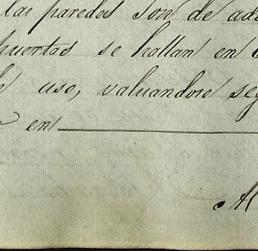 las paredes son de ado
puertas se hallan en
uso, valuandose seg
en